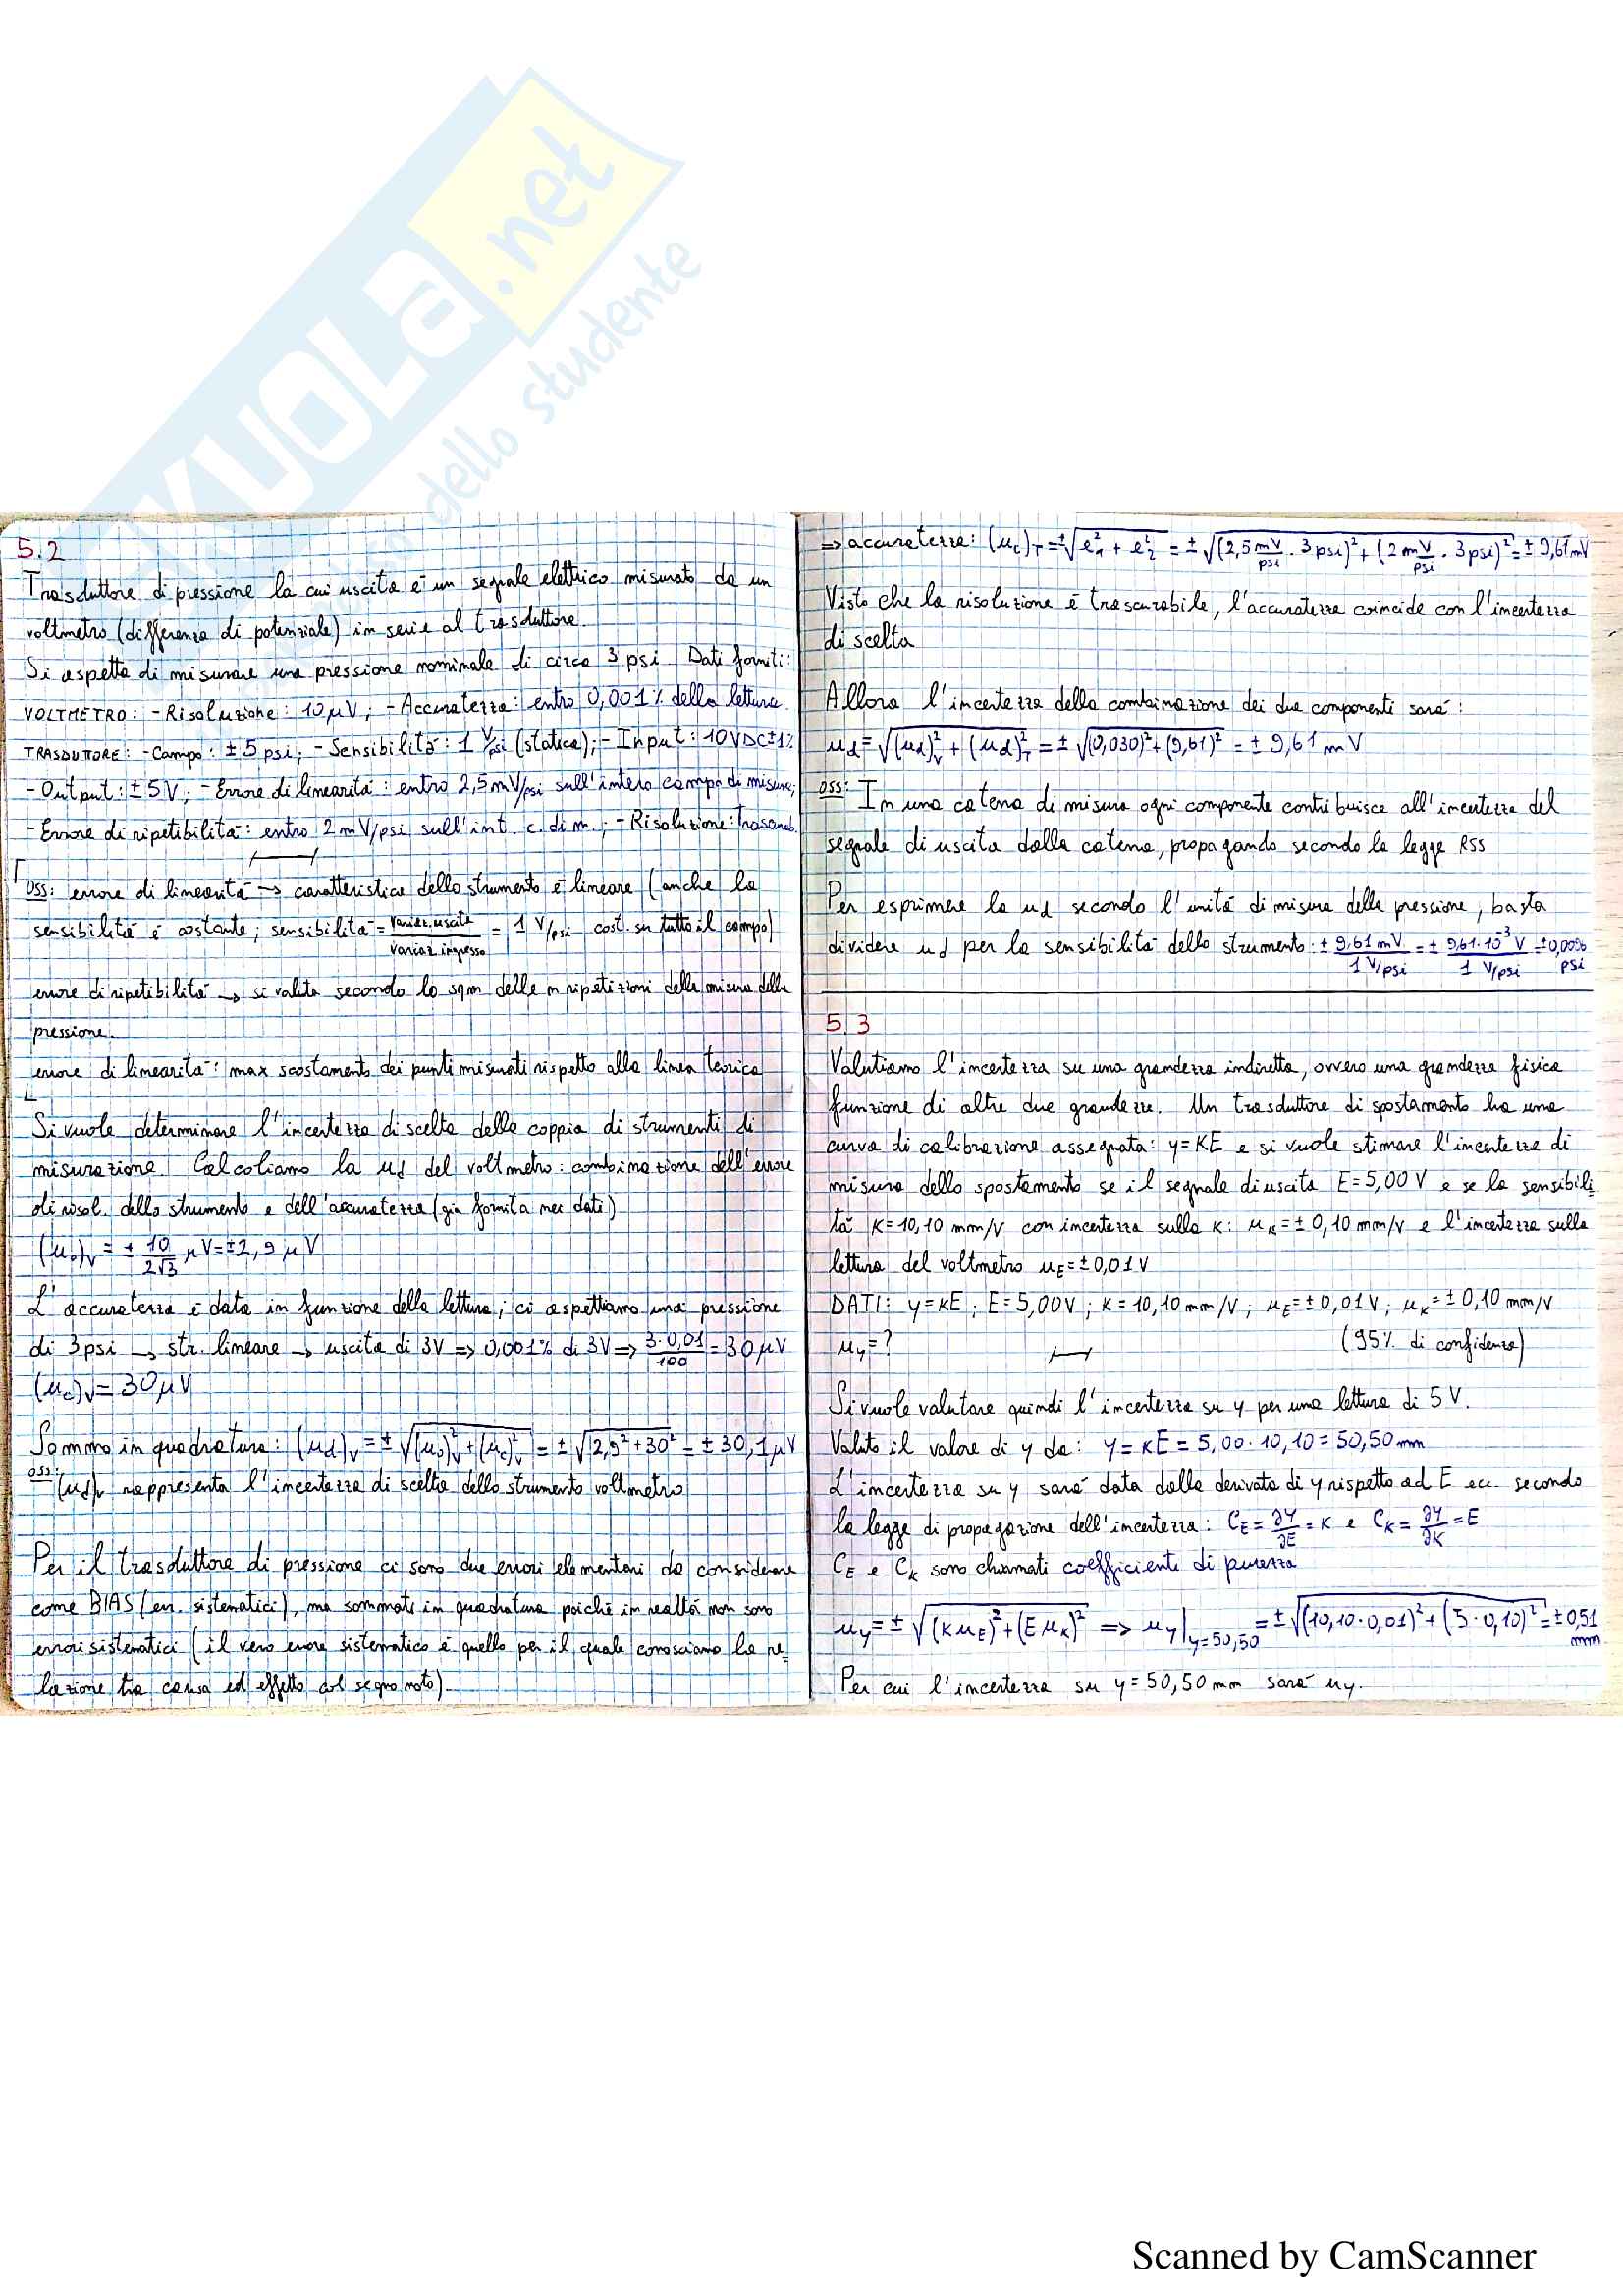 SKUOLA.net
dello studente
5.2
Trasduttore di pressione la cui uscita è un segnale elettrico misurato da un
voltmetro (differenza di potenziale) in serie al trasduttore.
Si aspetta di misurare una pressione nominale di circa 3 psi. Dati forniti:
VOLTMETRO: - Risoluzione: 10 μV; - Accuratezza: entro 0,001% della lettura.
TRASDUTTORE: - Campo: ± 5 psi; - Sensibilità: 1 V/psi (statica); - Input: 10 VDC ± 1%
- Output: ± 5V; - Errore di linearità: entro 2,5 mV/psi sull'intero campo di misura;
- Errore di ripetibilità: entro 2 mV/psi sull'int. c. di m.; - Risoluzione: Trascurab.
OSS: errore di linearità → caratteristica dello strumento è lineare (anche la
sensibilità è costante; sensibilità = variaz. uscita / variaz. ingresso = 1 V/psi cost. su tutto il campo)
errore di ripetibilità → si valuta secondo lo sqm delle n ripetizioni della misura della
pressione.
errore di linearità: max scostamento dei punti misurati rispetto alla linea teorica
Si vuole determinare l'incertezza di scelta della coppia di strumenti di
misurazione. Calcoliamo la ud del voltmetro: combinazione dell'errore
di risol. dello strumento e dell'accuratezza (già fornita nei dati)
(u₀)v = ± 10/2√3 μV = ±2,9 μV
L'accuratezza è data in funzione della lettura; ci aspettiamo una pressione
di 3 psi → str. lineare → uscita di 3V => 0,001% di 3V => 3·0,01/100 = 30 μV
(uc)v = 30 μV
Sommo in quadratura: (ud)v = ± √(u₀)²v + (uc)²v = ± √2,9² + 30² = ± 30,1 μV
oss: (ud)v rappresenta l'incertezza di scelta dello strumento voltmetro
Per il trasduttore di pressione ci sono due errori elementari da considerare
come BIAS (err. sistematici), ma sommati in quadratura poiché in realtà non sono
errori sistematici (il vero errore sistematico è quello per il quale conosciamo la re-
lazione tra causa ed effetto col segno noto).
=> accuratezza: (uc)T = ± √e₁² + e₂² = ± √(2,5 mV/psi · 3 psi)² + (2 mV/psi · 3 psi)² = ± 9,61 mV
Visto che la risoluzione è trascurabile, l'accuratezza coincide con l'incertezza
di scelta
Allora l'incertezza della combinazione dei due componenti sarà:
ud = √(ud)²v + (ud)²T = ± √(0,030)² + (9,61)² = ± 9,61 mV
OSS: In una catena di misura ogni componente contribuisce all'incertezza del
segnale di uscita dalla catena, propagando secondo la legge RSS
Per esprimere la ud secondo l'unità di misura della pressione, basta
dividere ud per la sensibilità dello strumento: ± 9,61 mV / 1 V/psi = ± 9,61·10⁻³ V / 1 V/psi = ±0,0096 psi
5.3
Valutiamo l'incertezza su una grandezza indiretta, ovvero una grandezza fisica
funzione di altre due grandezze. Un trasduttore di spostamento ha una
curva di calibrazione assegnata: y = KE e si vuole stimare l'incertezza di
misura dello spostamento se il segnale di uscita E = 5,00 V e se la sensibili
tà K = 10,10 mm/V con incertezza sulla K: uK = ± 0,10 mm/V e l'incertezza sulla
lettura del voltmetro uE = ± 0,01 V
DATI: y = KE; E = 5,00 V; K = 10,10 mm/V; uE = ± 0,01 V; uK = ± 0,10 mm/V
uy = ? (95% di confidenza)
Si vuole valutare quindi l'incertezza su y per una lettura di 5 V.
Valuto il valore di y da: y = KE = 5,00 · 10,10 = 50,50 mm
L'incertezza su y sarà data dalla derivata di y rispetto ad E ecc. secondo
la legge di propagazione dell'incertezza: CE = ∂y/∂E = K e CK = ∂y/∂K = E
CE e CK sono chiamati coefficiente di purezza
uy = ± √(K uE)² + (E uK)² => uy|y=50,50 = ± √(10,10 · 0,01)² + (5 · 0,10)² = ± 0,51 mm
Per cui l'incertezza su y = 50,50 mm sarà uy.
Scanned by CamScanner